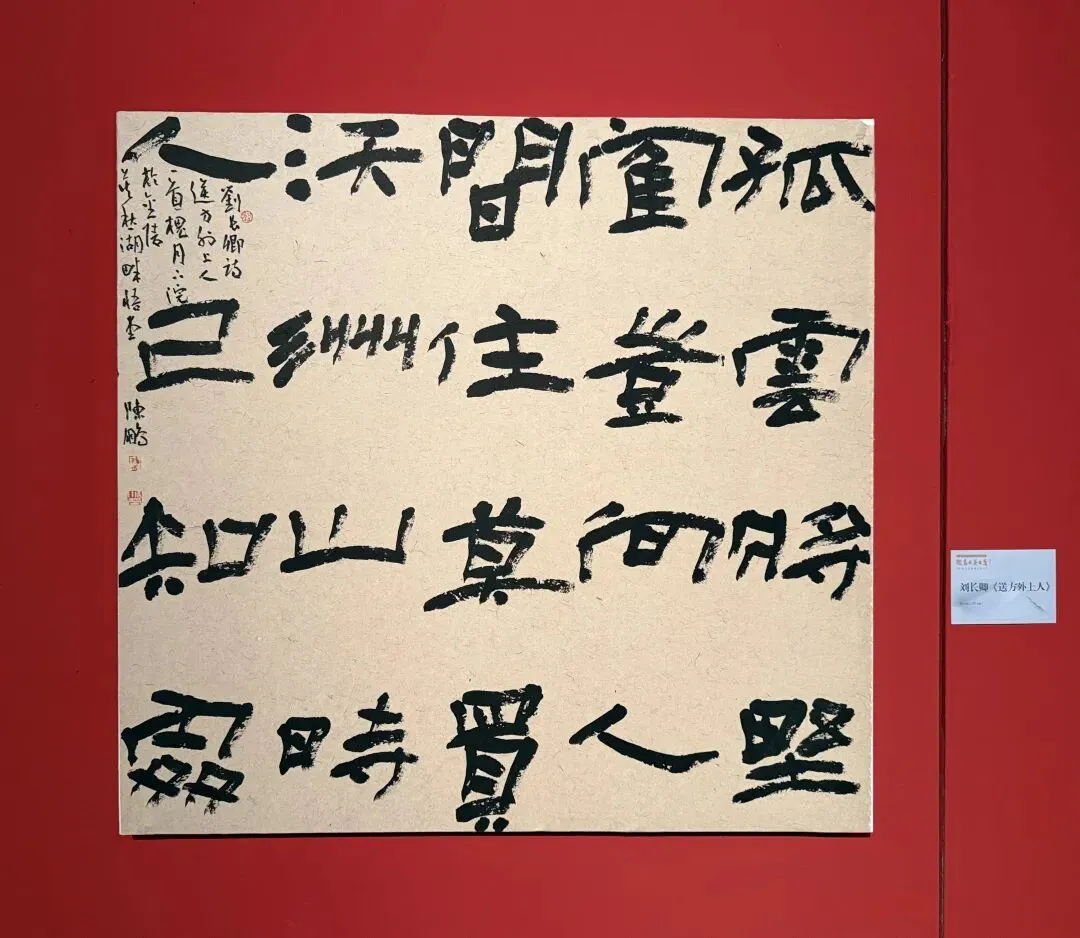 孤雲將野
隺豈向人
間住莫買
沃洲山時
人已知處
劉長卿詩
送方外上人
一首槐月下浣
於金陵
莫愁湖畔 陳鵬
刘长卿《送方外上人》